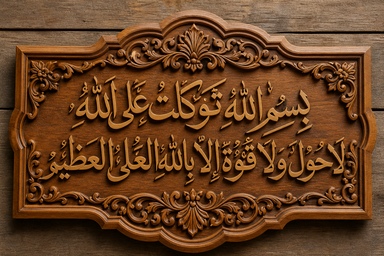 بِسْمِ اللّٰهِ تَوَكَّلْتُ عَلَى اللّٰهِ
لَا حَوْلَ وَلَا قُوَّةَ إِلَّا بِاللّٰهِ الْعَلِيِّ الْعَظِيْمِ